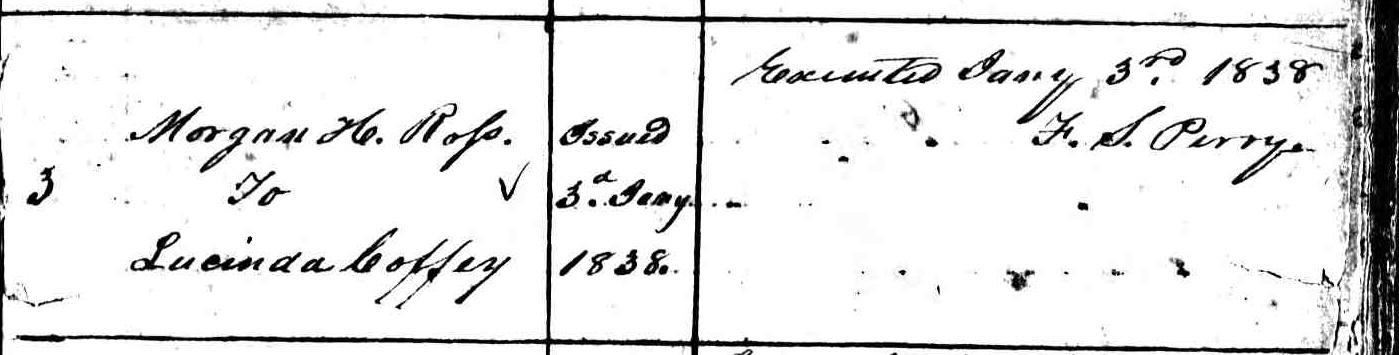 Executed Jany 3rd. 1838
Morgan H. Ross. Issued F. S. Perry.
3 To ✓ 3d. Jany.
Lucinda Coffey 1838.